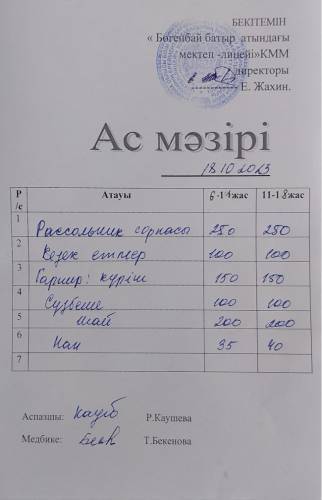 БЕКІТЕМІН
« Бөгенбай батыр атындағы
мектеп -лицейі»КММ
директоры
Е. Жахин.
Ас мәзірі
18.10.2023
Р/с Атауы 6-14жас 11-18жас
1 Рассольник сорпасы 250 250
2 Кезек етпер 100 100
3 Гарнир: күріш 150 150
4 Сүзбеше 100 100
5 Шай 200 200
6 Нан 35 40
7
Аспазшы: Кауб Р.Каушева
Медбике: Бек Т.Бекенова